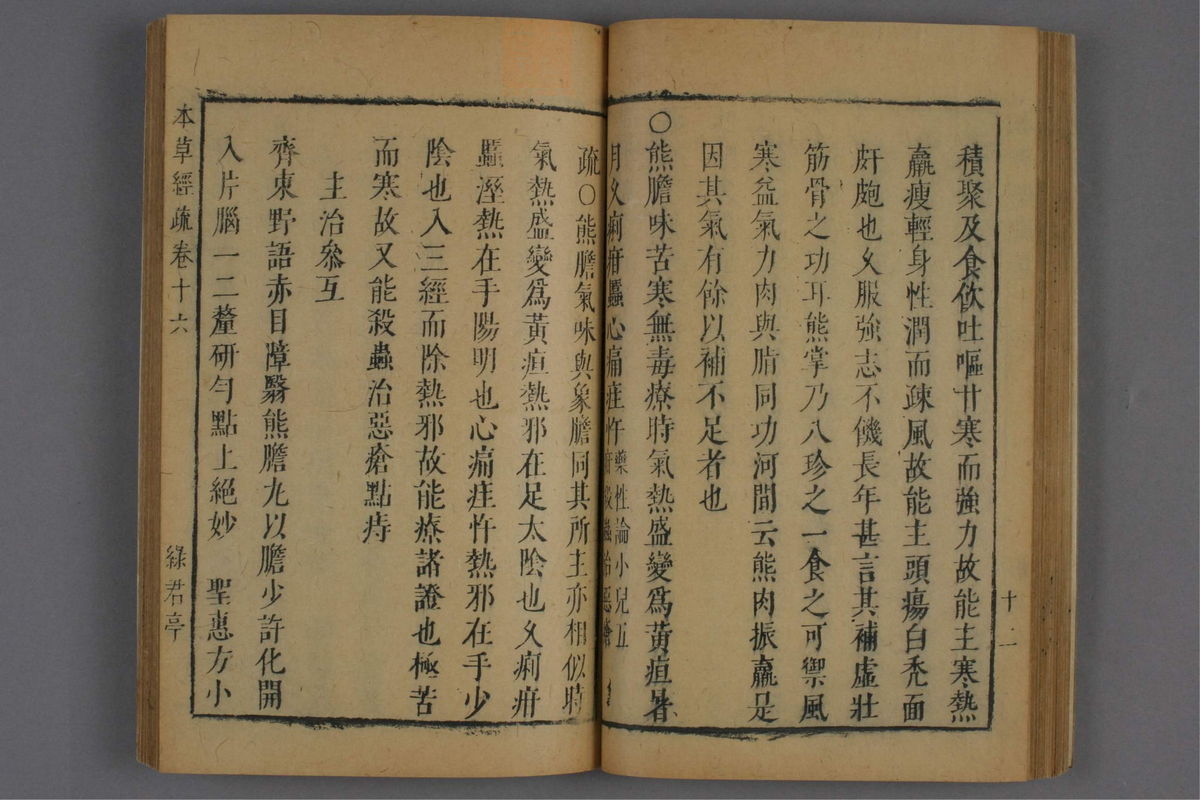 積聚及食飲吐嘔甘寒而強力故能主寒熱
羸瘦輕身性潤而疎風故能主頭瘍白禿面
皯皰也久服強志不饑長年甚言其補虛壯
筋骨之功耳熊掌乃八珍之一食之可禦風
寒益氣力肉與脂同功河間云熊肉振羸是
因其氣有餘以補不足者也
○熊膽味苦寒無毒療時氣熱盛變為黃疸暑
月久痢疳䘌心痛疰忤藥性論小兒五
疳殺蟲治惡瘡
十二
疏○熊膽氣味與象膽同其所主亦相似時
氣熱盛變為黃疸熱邪在足太陰也久痢疳
䘌溼熱在手陽明也心痛疰忤熱邪在手少
陰也入三經而除熱邪故能療諸證也極苦
而寒故又能殺蟲治惡瘡點痔
主治叅互
齊東野語赤目障翳熊膽丸以膽少許化開
入片腦一二釐研勻點上絕妙 聖惠方小
本草經疏卷十六
綠君亭